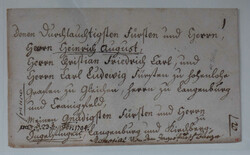 Denen Durchlauchtigsten Fürsten und Herrn,
Herrn Heinrich August,
Herrn Christian Friedrich Carl, und
Herrn Carl Ludewig Fürsten zu Hohenlohe
Grafen zu Gleichen, Herrn zu Langenburg
und Cranichfeld
Meinen Gnädigsten Fürsten und Herrn
zu
Ingelfingen Langenburg und Kirchberg.